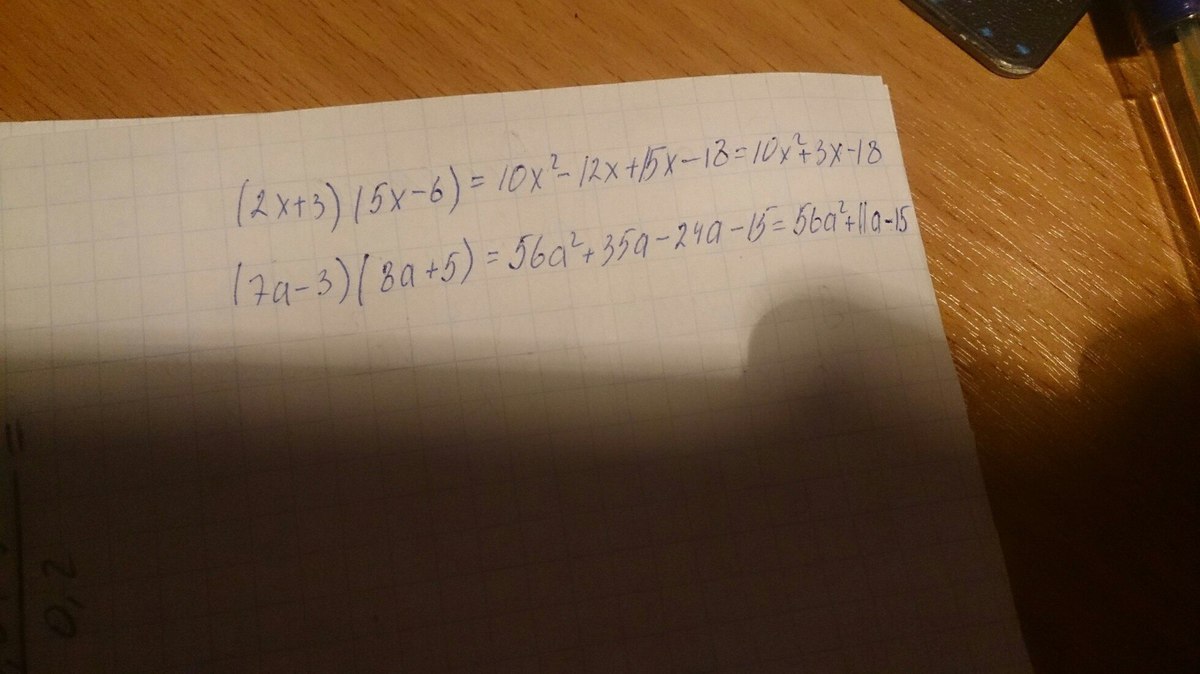 (2x+3)(5x-6)=10x²-12x+15x-18=10x²+3x-18
(7a-3)(8a+5)=56a²+35a-24a-15=56a²+11a-15
=
0,2